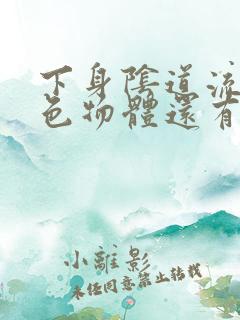 下身陰道流
色物體還有
小離影
未经同意禁止转载